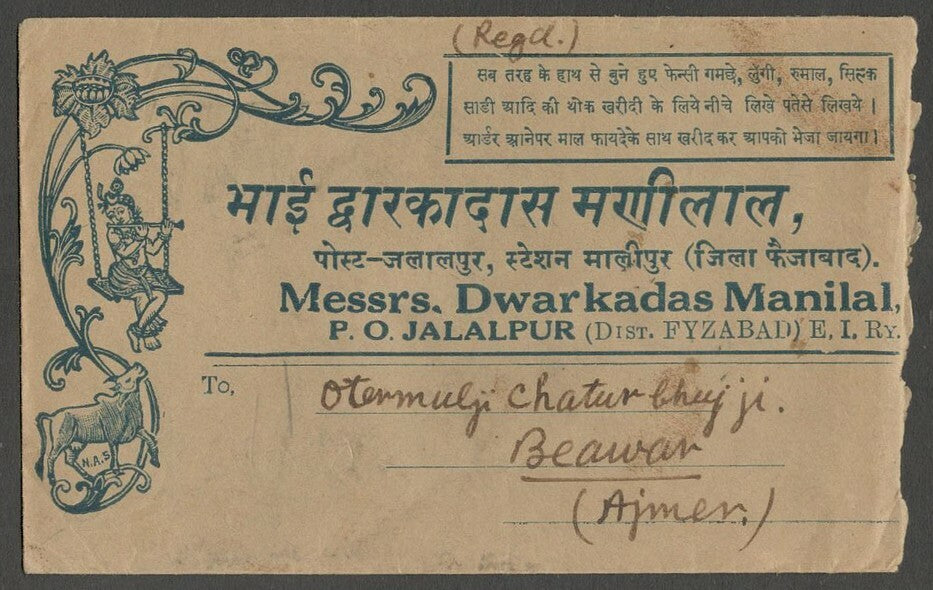 (Regd.)
सब तरह के हाथ से बुने हुए फेन्सी गमछे, लुंगी, रुमाल, सिल्क
साडी आदि की थोक खरीदी के लिये नीचे लिखे पतेसे लिखये ।
आर्डर आनेपर माल फायदेके साथ खरीद कर आपको भेजा जायगा ।
भाई द्वारकादास मणीलाल,
पोस्ट-जलालपुर, स्टेशन मालीपुर (जिला फैजाबाद).
Messrs. Dwarkadas Manilal,
P. O. JALALPUR (DIST. FYZABAD) E, I. RY.
To,
Otermulji Chaturbhujji.
Beawar
(Ajmer.)
N.A.S